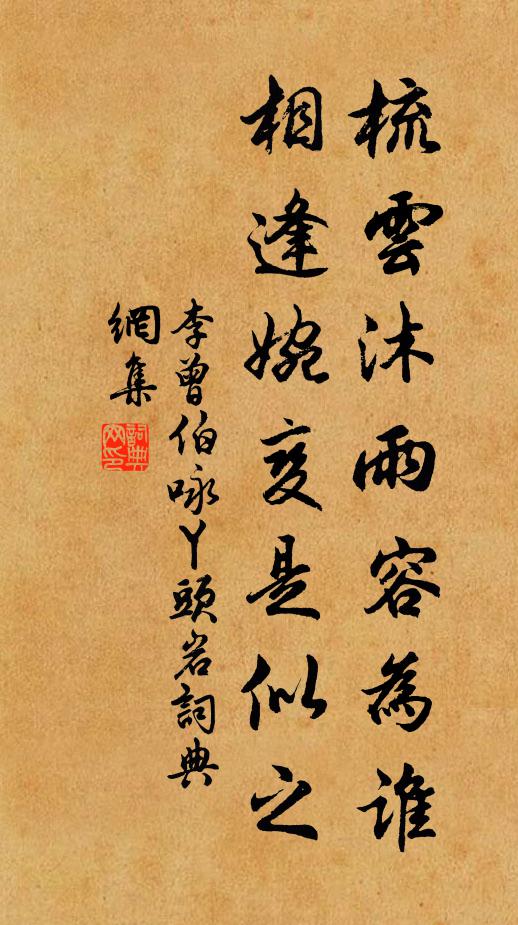 梳雲沐雨容為誰
相逢婉変是似之
李曾伯咏丫頭岩詞典
網集
詞典
网印